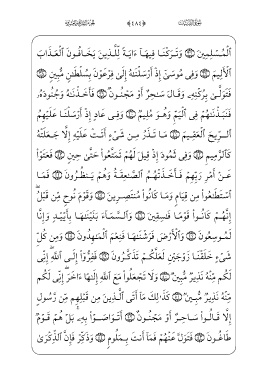 ٱلْمُسْلِمِينَ ۝٣٦ وَتَرَكْنَا فِيهَآ ءَايَةً لِّلَّذِينَ يَخَافُونَ ٱلْعَذَابَ
ٱلْأَلِيمَ ۝٣٧ وَفِى مُوسَىٰٓ إِذْ أَرْسَلْنَٰهُ إِلَىٰ فِرْعَوْنَ بِسُلْطَٰنٍ مُّبِينٍ ۝٣٨
فَتَوَلَّىٰ بِرُكْنِهِۦ وَقَالَ سَٰحِرٌ أَوْ مَجْنُونٌ ۝٣٩ فَأَخَذْنَٰهُ وَجُنُودَهُۥ
فَنَبَذْنَٰهُمْ فِى ٱلْيَمِّ وَهُوَ مُلِيمٌ ۝٤٠ وَفِى عَادٍ إِذْ أَرْسَلْنَا عَلَيْهِمُ
ٱلرِّيحَ ٱلْعَقِيمَ ۝٤١ مَا تَذَرُ مِن شَىْءٍ أَتَتْ عَلَيْهِ إِلَّا جَعَلَتْهُ
كَٱلرَّمِيمِ ۝٤٢ وَفِى ثَمُودَ إِذْ قِيلَ لَهُمْ تَمَتَّعُوا۟ حَتَّىٰ حِينٍ ۝٤٣ فَعَتَوْا۟
عَنْ أَمْرِ رَبِّهِمْ فَأَخَذَتْهُمُ ٱلصَّٰعِقَةُ وَهُمْ يَنظُرُونَ ۝٤٤ فَمَا
ٱسْتَطَٰعُوا۟ مِن قِيَامٍ وَمَا كَانُوا۟ مُنتَصِرِينَ ۝٤٥ وَقَوْمَ نُوحٍ مِّن قَبْلُ
إِنَّهُمْ كَانُوا۟ قَوْمًا فَٰسِقِينَ ۝٤٦ وَٱلسَّمَآءَ بَنَيْنَٰهَا بِأَيْي۟دٍ وَإِنَّا
لَمُوسِعُونَ ۝٤٧ وَٱلْأَرْضَ فَرَشْنَٰهَا فَنِعْمَ ٱلْمَٰهِدُونَ ۝٤٨ وَمِن كُلِّ
شَىْءٍ خَلَقْنَا زَوْجَيْنِ لَعَلَّكُمْ تَذَكَّرُونَ ۝٤٩ فَفِرُّوٓا۟ إِلَى ٱللَّهِ إِنِّى
لَكُم مِّنْهُ نَذِيرٌ مُّبِينٌ ۝٥٠ وَلَا تَجْعَلُوا۟ مَعَ ٱللَّهِ إِلَٰهًا ءَاخَرَ إِنِّى لَكُم
مِّنْهُ نَذِيرٌ مُّبِينٌ ۝٥١ كَذَٰلِكَ مَآ أَتَى ٱلَّذِينَ مِن قَبْلِهِم مِّن رَّسُولٍ
إِلَّا قَالُوا۟ سَاحِرٌ أَوْ مَجْنُونٌ ۝٥٢ أَتَوَاصَوْا۟ بِهِۦ بَلْ هُمْ قَوْمٌ
طَاغُونَ ۝٥٣ فَتَوَلَّ عَنْهُمْ فَمَآ أَنتَ بِمَلُومٍ ۝٥٤ وَذَكِّرْ فَإِنَّ ٱلذِّكْرَىٰ